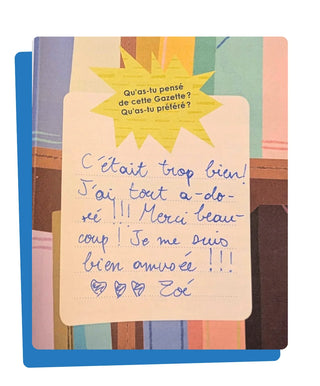 Qu'as-tu pensé
de cette Gazette ?
Qu'as-tu préféré ?
C'était trop bien!
J'ai tout a-do-
ré !!! Merci beau-
coup ! Je me suis
bien amusée !!!
♡ ♡ ♡ Zoé